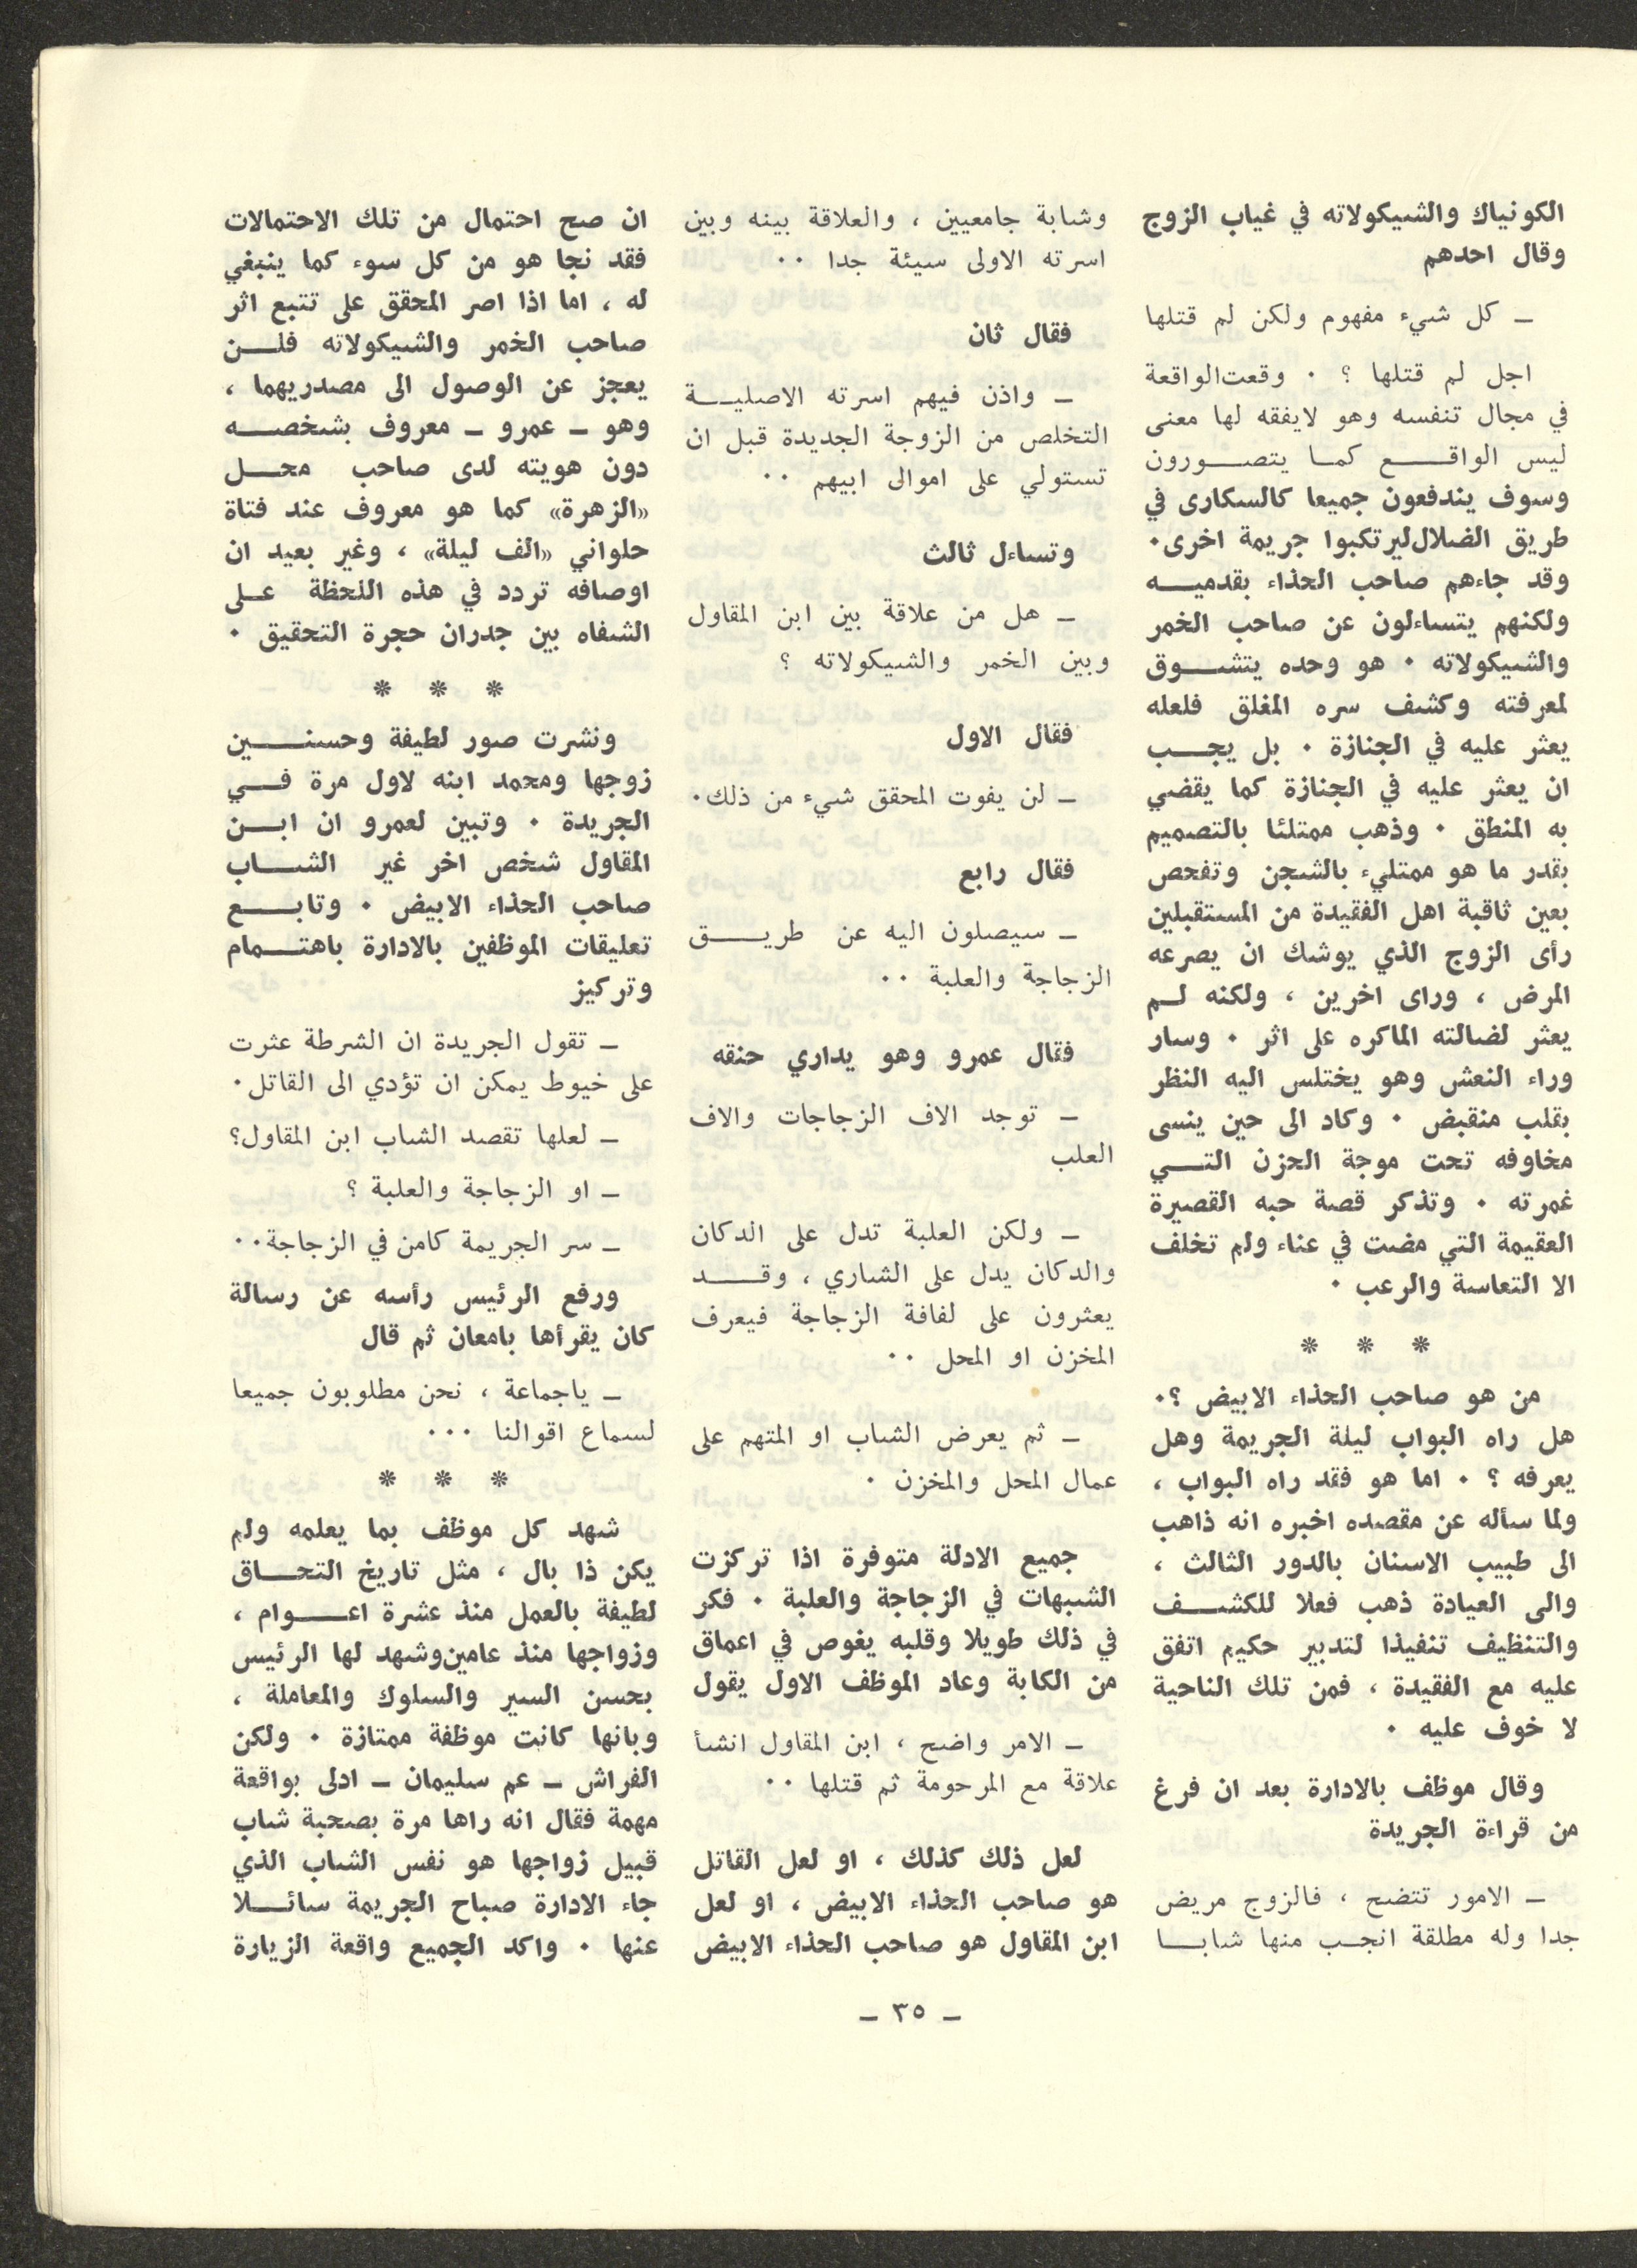 الكونياك والشيكولاته في غياب الزوج
وقال احدهم
ـ كل شيء مفهوم ولكن لم قتلها
اجل لم قتلها ؟ ٠ وقعت الواقعة
في مجال تنفسه وهو لايفقه لها معنى
ليس الواقع كما يتصورون
وسوف يندفعون جميعا كالسكارى في
طريق الضلال ليرتكبوا جريمة اخرى٠
وقد جاءهم صاحب الحذاء بقدميه
ولكنهم يتساءلون عن صاحب الخمر
والشيكولاته ٠ هو وحده يتشوق
لمعرفته وكشف سره المغلق فلعله
يعثر عليه في الجنازة ٠ بل يجب
ان يعثر عليه في الجنازة كما يقضي
به المنطق ٠ وذهب ممتلئا بالتصميم
بقدر ما هو ممتليء بالشجن وتفحص
بعين ثاقبة اهل الفقيدة من المستقبلين
رأى الزوج الذي يوشك ان يصرعه
المرض ، وراى اخرين ، ولكنه لم
يعثر لضالته الماكره على اثر ٠ وسار
وراء النعش وهو يختلس اليه النظر
بقلب منقبض ٠ وكاد الى حين ينسى
مخاوفه تحت موجة الحزن التي
غمرته ٠ وتذكر قصة حبه القصيرة
العقيمة التي مضت في عناء ولم تخلف
الا التعاسة والرعب ٠
* * *
من هو صاحب الحذاء الابيض ؟٠
هل راه البواب ليلة الجريمة وهل
يعرفه ؟ ٠ اما هو فقد راه البواب ،
ولما سأله عن مقصده اخبره انه ذاهب
الى طبيب الاسنان بالدور الثالث ،
والى العيادة ذهب فعلا للكشف
والتنظيف تنفيذا لتدبير حكيم اتفق
عليه مع الفقيدة ، فمن تلك الناحية
لا خوف عليه ٠
وقال موظف بالادارة بعد ان فرغ
من قراءة الجريدة
ـ الامور تتضح ، فالزوج مريض
جدا وله مطلقة انجب منها شابا
وشابة جامعيين ، والعلاقة بينه وبين
اسرته الاولى سيئة جدا ٠٠
فقال ثان
ـ واذن فيهم اسرته الاصلية
التخلص من الزوجة الجديدة قبل ان
تستولي على اموالى ابيهم ٠٠
وتساءل ثالث
ـ هل من علاقة بين ابن المقاول
وبين الخمر والشيكولاته ؟
فقال الاول
ـ لن يفوت المحقق شيء من ذلك٠
فقال رابع
ـ سيصلون اليه عن طريق
الزجاجة والعلبة ٠٠
فقال عمرو وهو يداري حنقه
ـ توجد الاف الزجاجات والاف
العلب
ـ ولكن العلبة تدل على الدكان
والدكان يدل على الشاري ، وقد
يعثرون على لفافة الزجاجة فيعرف
المخزن او المحل ٠٠
ـ ثم يعرض الشاب او المتهم على
عمال المحل والمخزن ٠
جميع الادلة متوفرة اذا تركزت
الشبهات في الزجاجة والعلبة ٠ فكر
في ذلك طويلا وقلبه يغوص في اعماق
من الكابة وعاد الموظف الاول يقول
ـ الامر واضح ، ابن المقاول انشأ
علاقة مع المرحومة ثم قتلها ٠٠
لعل ذلك كذلك ، او لعل القاتل
هو صاحب الحذاء الابيض ، او لعل
ابن المقاول هو صاحب الحذاء الابيض
ان صح احتمال من تلك الاحتمالات
فقد نجا هو من كل سوء كما ينبغي
له ، اما اذا اصر المحقق على تتبع اثر
صاحب الخمر والشيكولاته فلن
يعجز عن الوصول الى مصدريهما ،
وهو ـ عمرو ـ معروف بشخصه
دون هويته لدى صاحب محل
«الزهرة» كما هو معروف عند فتاة
حلواني «الف ليلة» ، وغير بعيد ان
اوصافه تردد في هذه اللحظة على
الشفاه بين جدران حجرة التحقيق ٠
* * *
ونشرت صور لطيفة وحسنين
زوجها ومحمد ابنه لاول مرة في
الجريدة ٠ وتبين لعمرو ان ابن
المقاول شخص اخر غير الشاب
صاحب الحذاء الابيض ٠ وتابع
تعليقات الموظفين بالادارة باهتمام
وتركيز
ـ تقول الجريدة ان الشرطة عثرت
على خيوط يمكن ان تؤدي الى القاتل٠
ـ لعلها تقصد الشاب ابن المقاول؟
ـ او الزجاجة والعلبة ؟
ـ سر الجريمة كامن في الزجاجة٠٠
ورفع الرئيس رأسه عن رسالة
كان يقرأها بامعان ثم قال
ـ ياجماعة ، نحن مطلوبون جميعا
لسماع اقوالنا ٠٠٠
* * *
شهد كل موظف بما يعلمه ولم
يكن ذا بال ، مثل تاريخ التحاق
لطيفة بالعمل منذ عشرة اعوام ،
وزواجها منذ عامين وشهد لها الرئيس
بحسن السير والسلوك والمعاملة ،
وبانها كانت موظفة ممتازة ٠ ولكن
الفراش ـ عم سليمان ـ ادلى بواقعة
مهمة فقال انه راها مرة بصحبة شاب
قبيل زواجها هو نفس الشاب الذي
جاء الادارة صباح الجريمة سائلا
عنها ٠ واكد الجميع واقعة الزيارة
ـ ٣٥ ـ